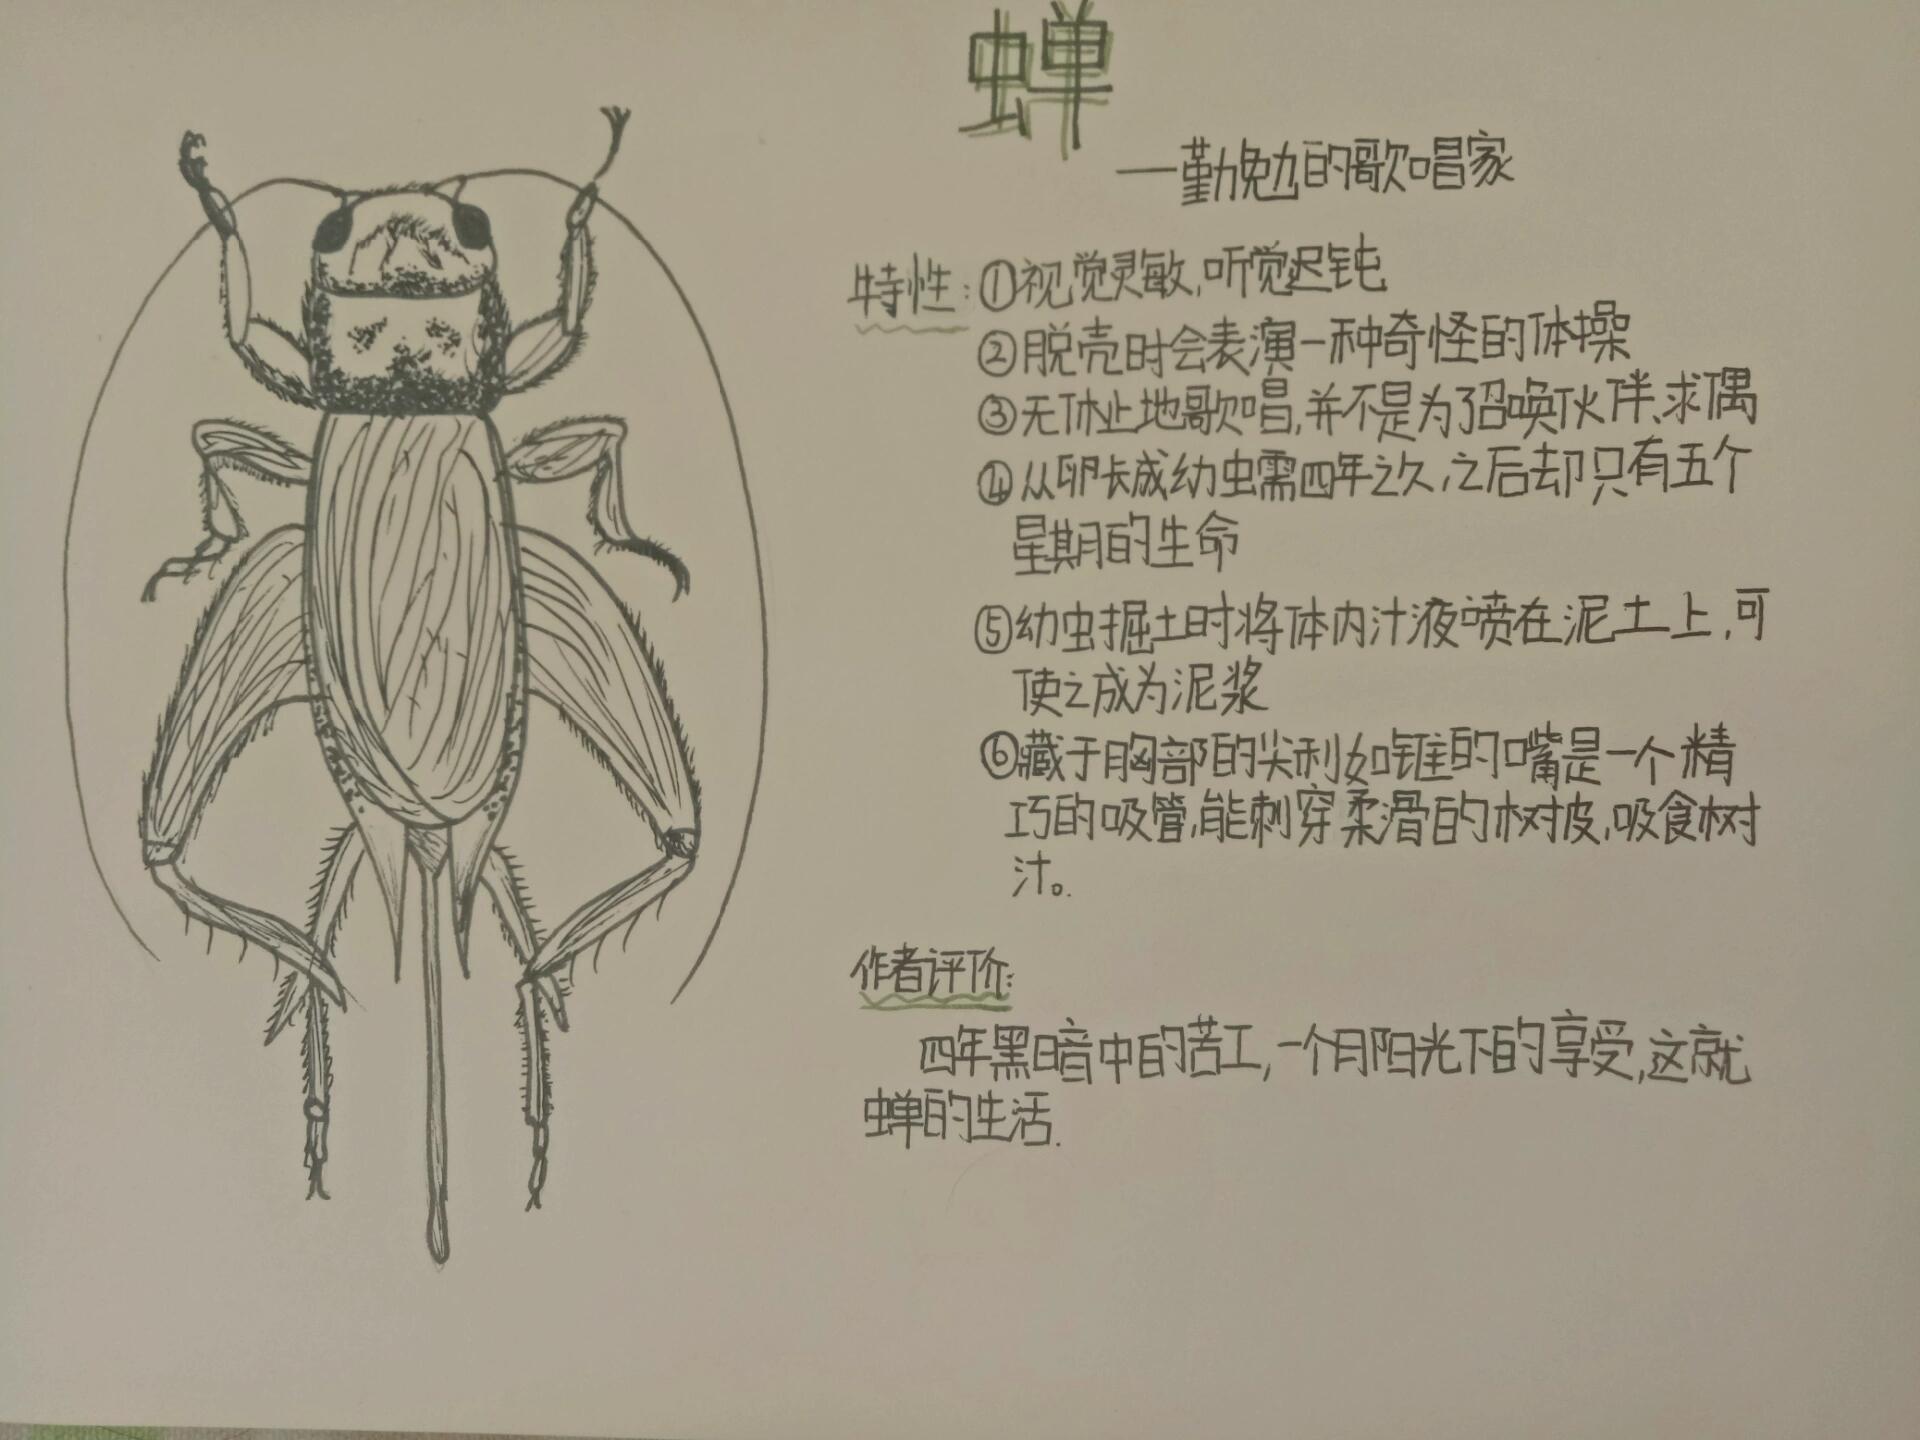 蝉
—勤勉的歌唱家
特性：①视觉灵敏，听觉迟钝
②脱壳时会表演一种奇怪的体操
③无休止地歌唱，并不是为了召唤伙伴、求偶
④从卵长成幼虫需四年之久，之后却只有五个
星期的生命
⑤幼虫掘土时将体内汁液喷在泥土上，可
使之成为泥浆
⑥藏于胸部的尖利如锥的嘴是一个精
巧的吸管，能刺穿柔滑的树皮，吸食树
汁。
作者评价：
四年黑暗中的苦工，一个月阳光下的享受，这就
蝉的生活.